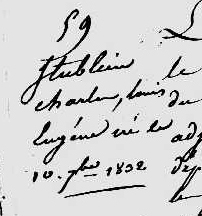 59
Stublein
charles, Louis
Eugéne né le
10. 7bre 1832
le
du